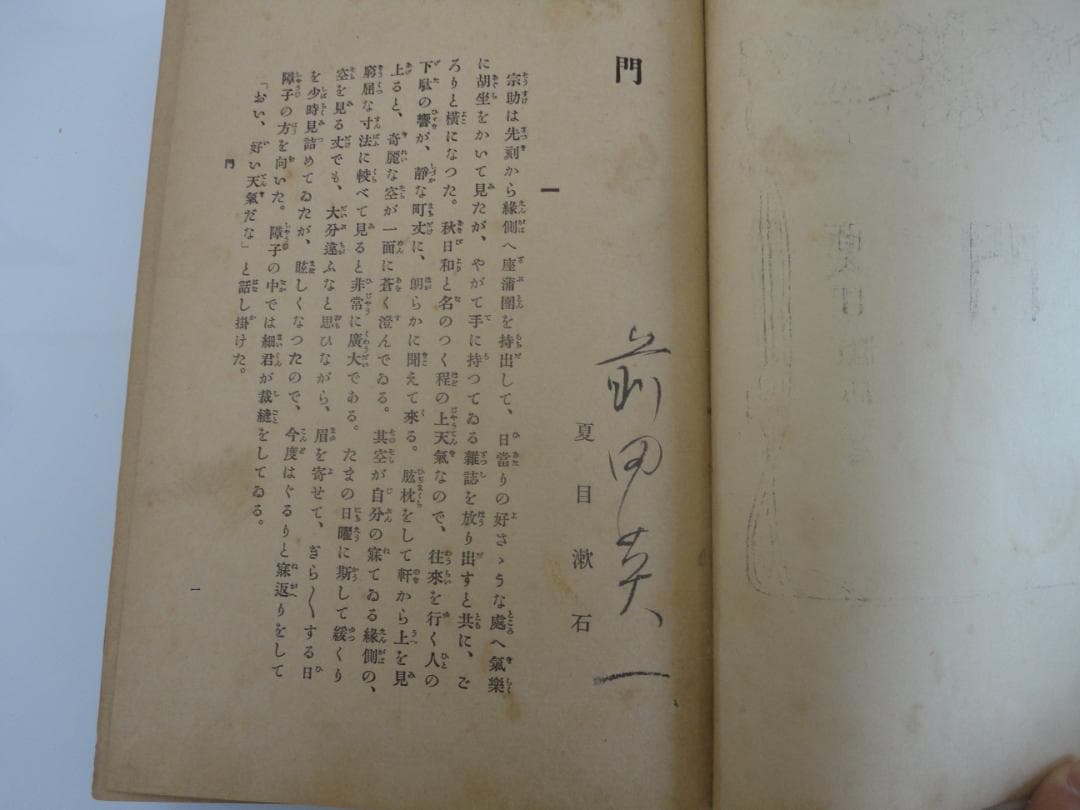 門
前田英一
夏目漱石
一
宗助は先刻から緣側へ座蒲團を持出して、日當りの好ささうな處へ氣樂
に胡坐をかいて見たが、やがて手に持つてゐる雜誌を放り出すと共に、ご
ろりと橫になつた。秋日和と名のつく程の上天氣なので、往來を行く人の
下駄の響が、靜な町丈に、朗らかに聞えて來る。肱枕をして軒から上を見
上ると、奇麗な空が一面に蒼く澄んでゐる。其空が自分の寐てゐる緣側の、
窮屈な寸法に較べて見ると非常に廣大である。たまの日曜に斯して緩くり
空を見る丈でも、大分違ふなと思ひながら、眉を寄せて、ぎら〳〵する日
を少時見詰めてゐたが、眩しくなつたので、今度はぐるりと寐返りをして
障子の方を向いた。障子の中では細君が裁縫をしてゐる。
「おい、好い天氣だな」と話し掛けた。
門
一